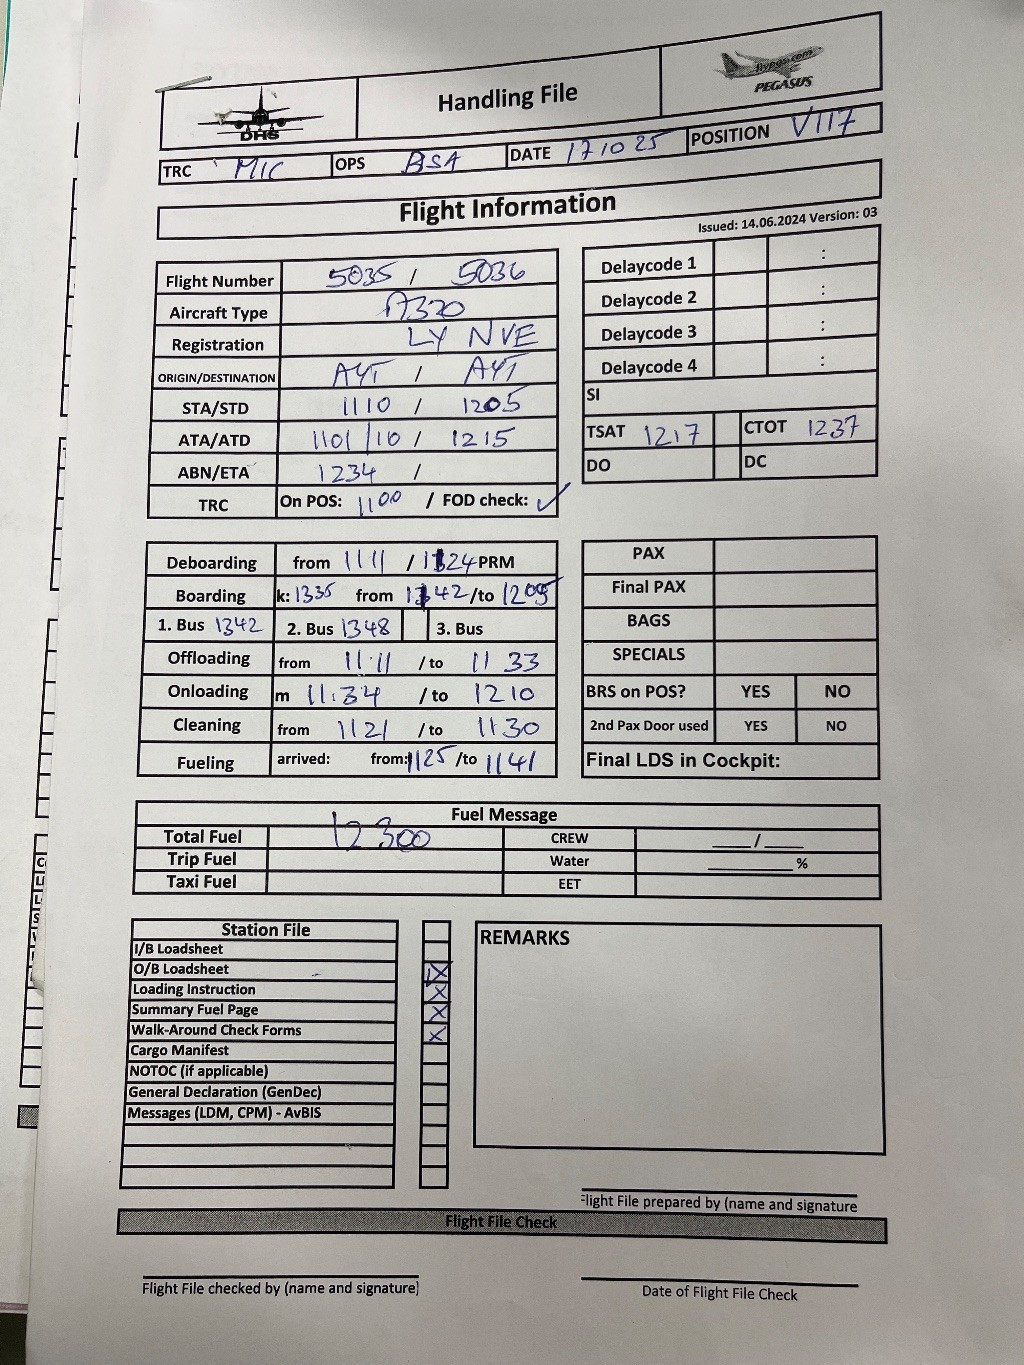 DHS
Handling File
flypgs.com
PEGASUS
TRC MIC OPS BSA DATE 17 10 25 POSITION V117
Flight Information
Issued: 14.06.2024 Version: 03
Flight Number 5035 / 5036
Aircraft Type A320
Registration LY NVE
ORIGIN/DESTINATION AYT / AYT
STA/STD 1110 / 1205
ATA/ATD 1101/10 / 1215
ABN/ETA 1234 /
TRC On POS: 1100 / FOD check: ✓
Delaycode 1 :
Delaycode 2 :
Delaycode 3 :
Delaycode 4 :
SI
TSAT 1217 CTOT 1237
DO DC
Deboarding from 1111 / 1124 PRM
Boarding k: 1335 from 1142 /to 1205
1. Bus 1342 2. Bus 1348 3. Bus
Offloading from 11:11 /to 11 33
Onloading m 11:34 /to 1210
Cleaning from 1121 /to 1130
Fueling arrived: from: 1125 /to 1141
PAX
Final PAX
BAGS
SPECIALS
BRS on POS? YES NO
2nd Pax Door used YES NO
Final LDS in Cockpit:
Fuel Message
Total Fuel 12300 CREW ___/___
Trip Fuel Water ______%
Taxi Fuel EET
Station File
I/B Loadsheet
O/B Loadsheet X
Loading Instruction X
Summary Fuel Page X
Walk-Around Check Forms X
Cargo Manifest
NOTOC (if applicable)
General Declaration (GenDec)
Messages (LDM, CPM) - AvBIS
REMARKS
Flight File prepared by (name and signature
Flight File Check
Flight File checked by (name and signature)
Date of Flight File Check